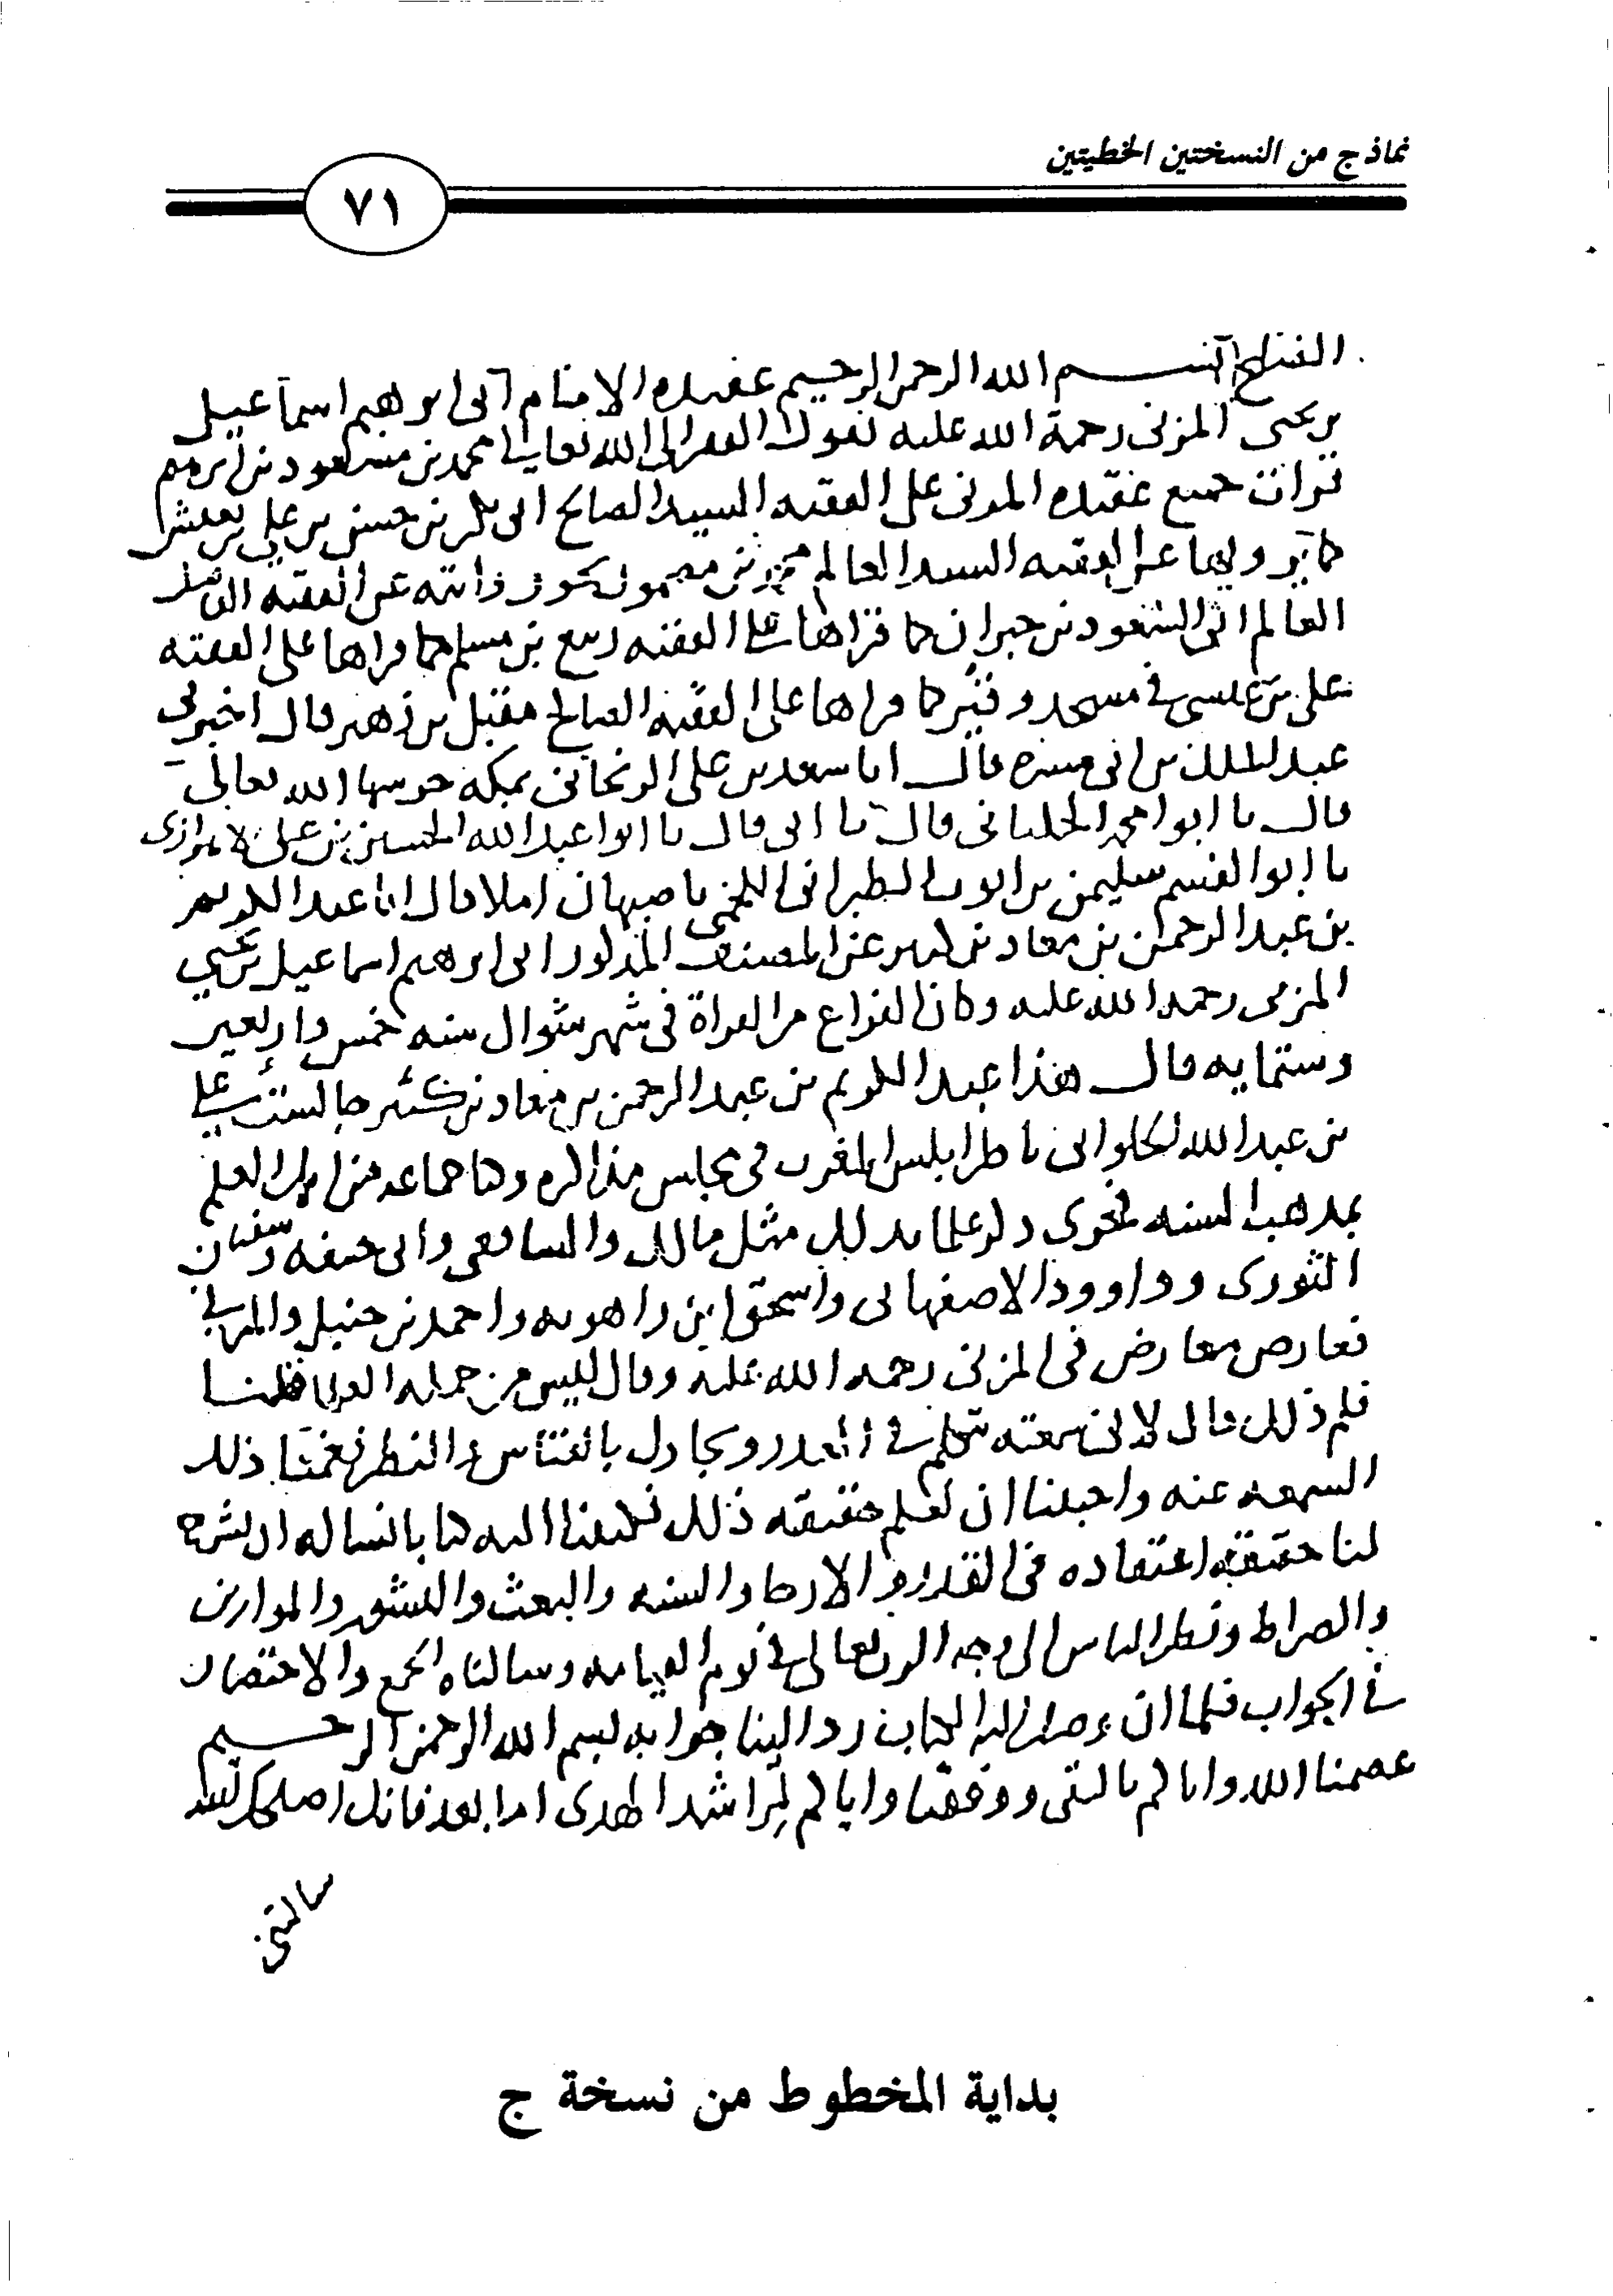 نماذج من النسختين الخطيتين
٧١
بسم الله الرحمن الرحيم عقيده الامام ابى ابرهيم اسماعيل
بن يحيى المزنى رحمة الله عليه يقول الفقير الى الله تعالى محمد بن مسعود بن ابرهيم
قرات جميع عقيده المزنى على الفقيه السيد الصالح ابى بكر بن حسن بن على بن
كما يرويها عن الفقيه السيد العالم عن الفقيه
العالم ابى السعود بن خيران كما قراها على الفقيه ربيع بن مسلم كما قراها على الفقيه
على بن عيسى فى مسجد كما قراها على الفقيه الصالح مقبل بن زهير قال اخبرنى
عبد الملك بن ابى ميسره قال انا سعد بن على الزنجانى بمكه حرسها الله تعالى
قال نا ابو محمد قال نا ابى قال نا ابوا عبد الله الحسين بن على
نا ابو القسم سليمن بن ايوب الطبرانى اللخمى باصبهان املا قال انا عبد الكريم
بن عبد الرحمن بن معاذ بن كثير عن المصنف المذكور ابى ابرهيم اسماعيل بن يحيى
المزنى رحمه الله عليه وكان الفراغ من القراة فى شهر شوال سنه خمس واربعين
وستمايه قال هذا عبد الكريم بن عبد الرحمن بن معاذ بن كثير جالست على
بن عبد الله الحلوانى باطرابلس المغرب فى مجلس مذاكره وكنا جماعه من اهل العلم
بمذهب السنه فجرى ذكر علما بذلك مثل مالك والشافعى وابى حنيفه وسفيان
الثورى وداوود الاصفهانى واسحق ابن راهويه واحمد بن حنبل والمزنى
فعارض معارض فى المزنى رحمه الله عليه وقال ليس من جمله العلما قلنا
فلم ذلك قال لانى سمعته تكلم فى القدر ويجادل بالقياس والنظر فغمنا ذلك
السمعه عنه واحببنا ان نعلم حقيقه ذلك فكتبنا اليه كتابا نساله ان يشرح
لنا حقيقه اعتقاده فى القدر والارجا والسنه والبعث والنشور والموازين
والصراط ونظر الناس الى وجه الرب تعالى فى يوم القيامه وسالناه الجمع والاختصار
فى الجواب فلما ان وصل اليه الكتاب رد الينا جوابه بسم الله الرحمن الرحيم
عصمنا الله واياكم بالتقى ووفقنا واياكم لمراشد الهدى اما بعد فانك اصلحك الله
سالتنى
بداية المخطوط من نسخة ج